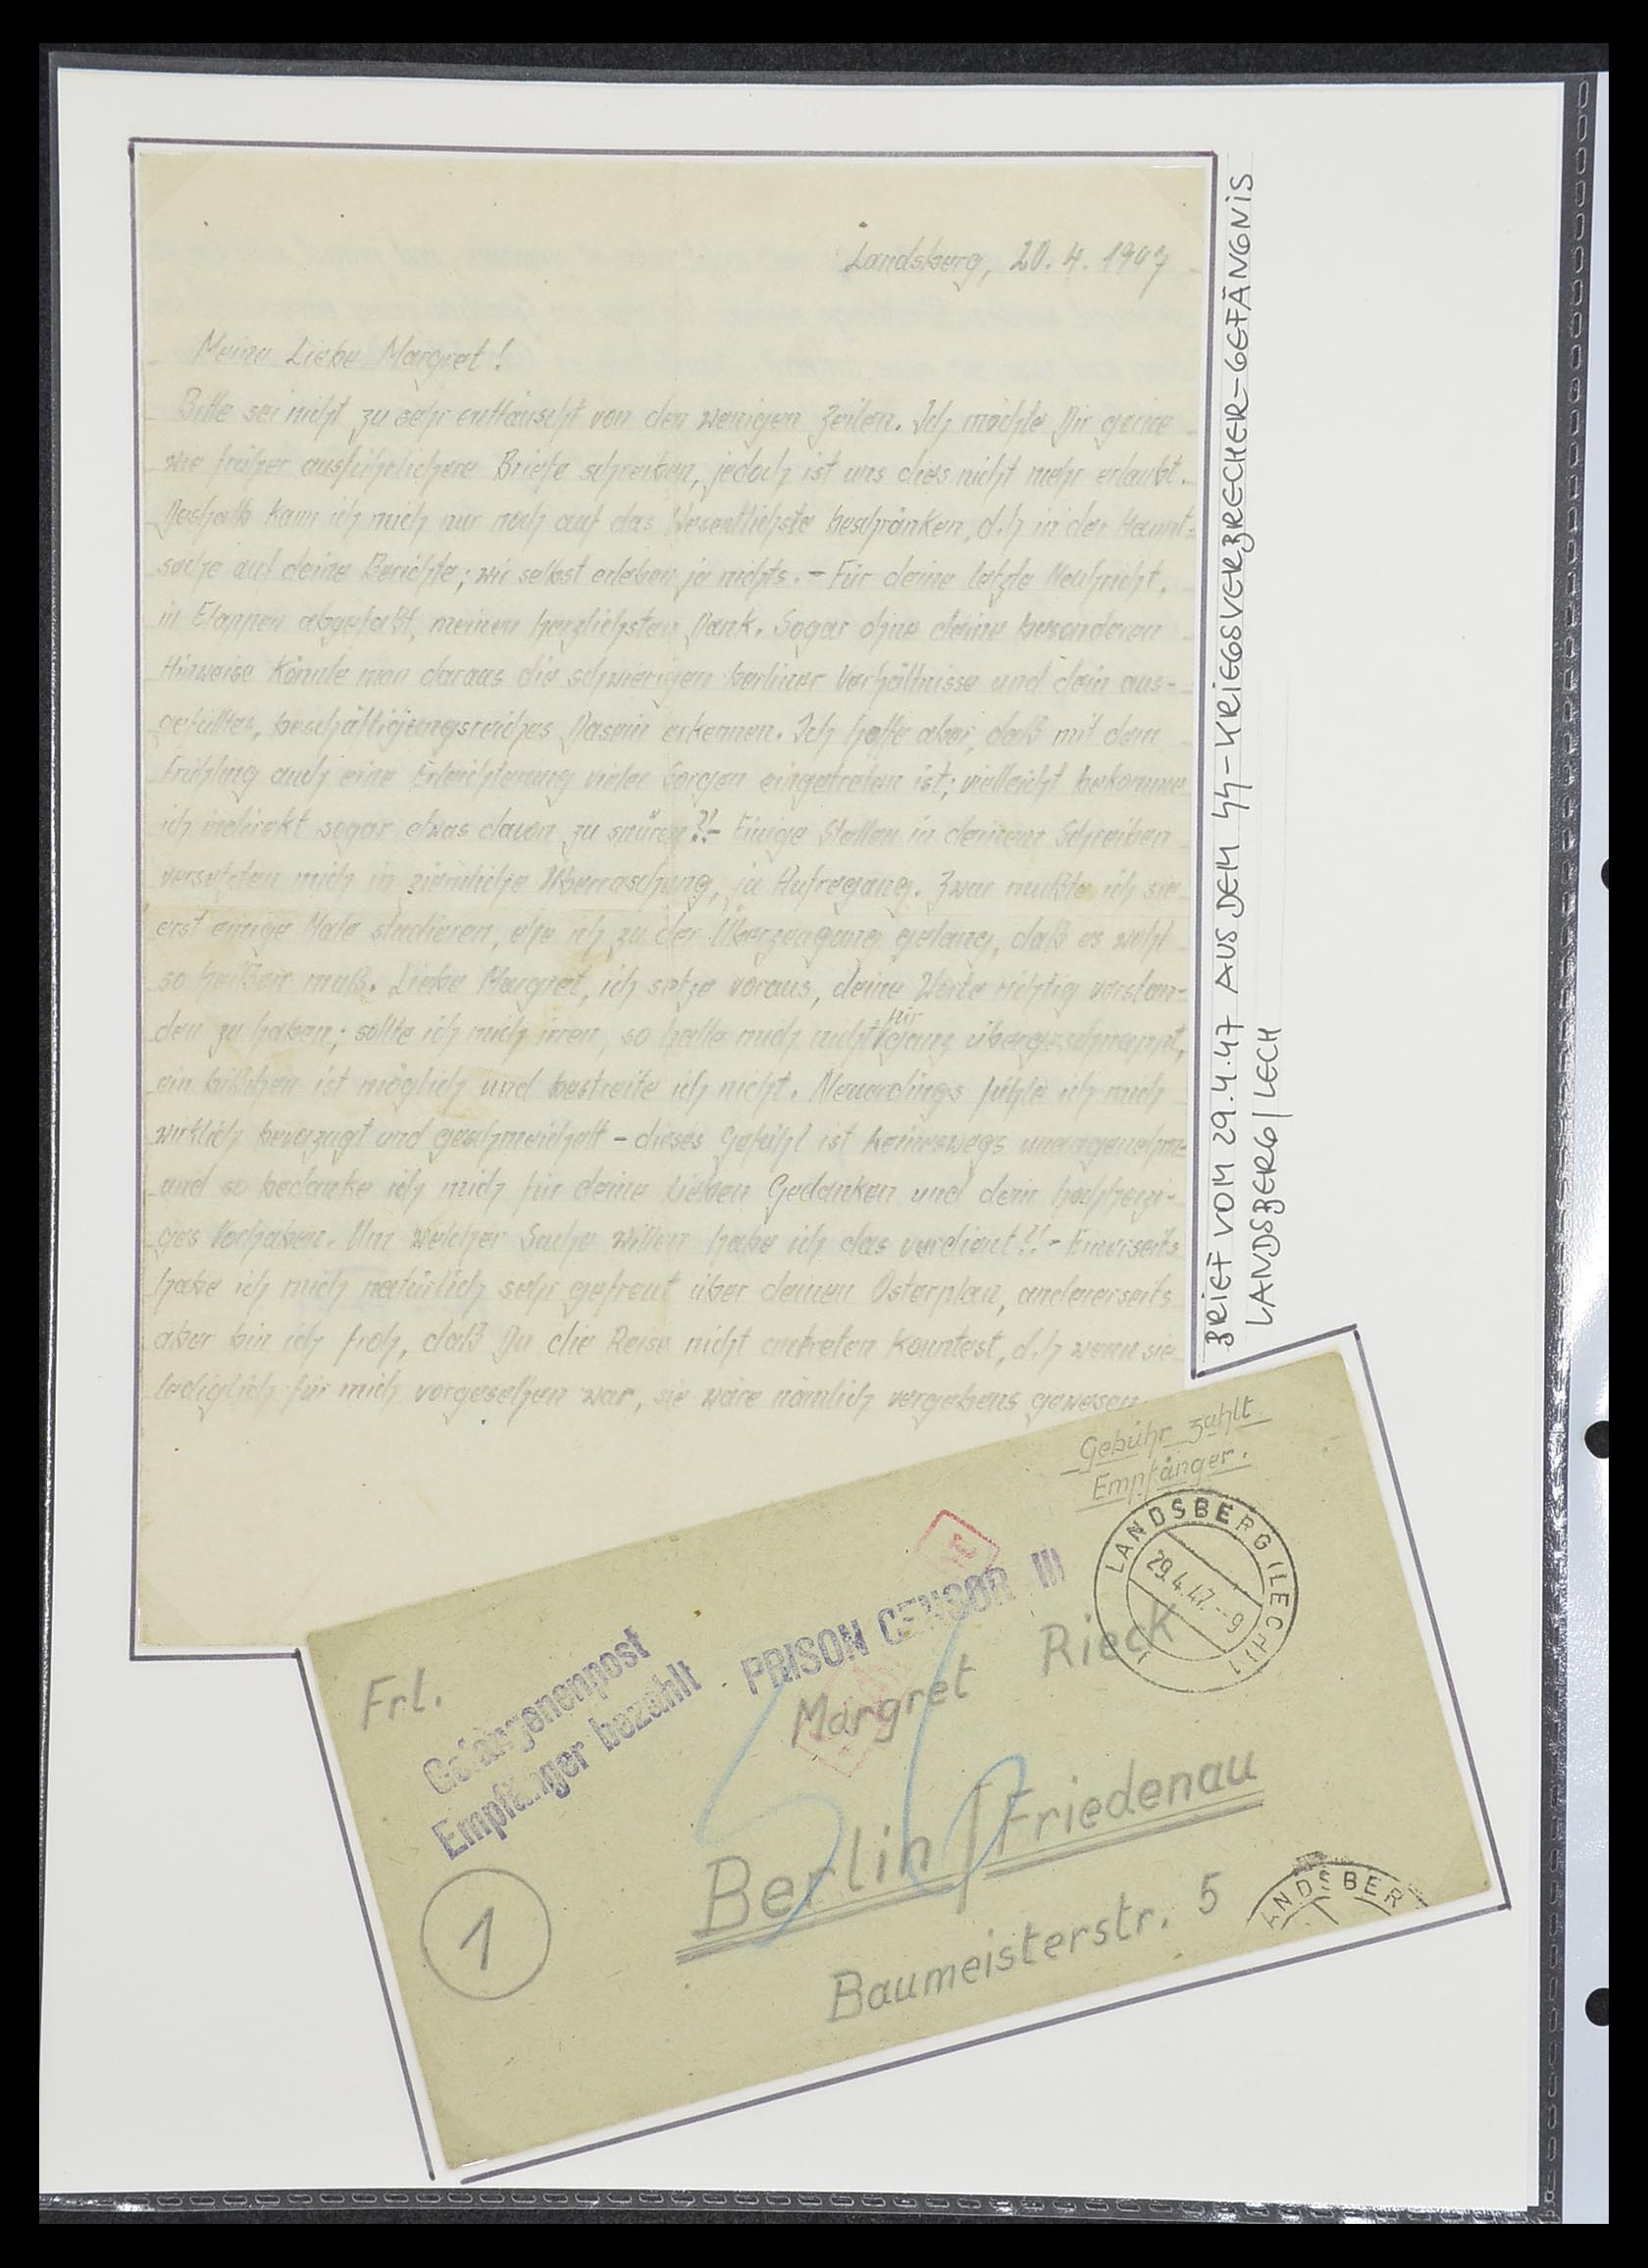 Landsberg, 20.4.1947
Meine Liebe Margret!
Bitte sei nicht zu sehr enttäuscht von den wenigen Zeilen. Ich möchte Dir gerne
wie früher ausführlichere Briefe schreiben, jedoch ist uns dies nicht mehr erlaubt.
Deshalb kann ich mich nur noch auf das Wesentlichste beschränken, d.h in der Haupt-
sache auf deine Berichte; wir selbst erleben ja nichts. - Für deine letzte Nachricht,
in Etappen abgefaßt, meinen herzlichsten Dank. Sogar ohne deine besonderen
Hinweise könnte man daraus die schwierigen berliner Verhältnisse und dein aus-
gefülltes, beschäftigungsreiches Dasein erkennen. Ich hoffe aber, daß mit dem
Frühling auch eine Erleichterung vieler Sorgen eingetreten ist; vielleicht bekomme
ich indirekt sogar etwas davon zu spüren?!- Einige Stellen in deinem Schreiben
versetzten mich in ziemliche Überraschung, ja Aufregung. Zwar mußte ich sie
erst einige Male studieren, ehe ich zu der Überzeugung gelang, daß es wohl
so heißen muß. Liebe Margret, ich setze voraus, deine Worte richtig verstan-
den zu haben; sollte ich mich irren, so halte mich nicht für ganz übergeschnappt,
ein bißchen ist möglich und bestreite ich nicht. Neuerdings fühle ich mich
wirklich bevorzugt und geschmeichelt - dieses Gefühl ist keineswegs unangenehm
und so bedanke ich mich für deine lieben Gedanken und dein hochherzi-
ges Vorhaben. Um welcher Sache willen habe ich das verdient?! - Einerseits
habe ich mich natürlich sehr gefreut über deinen Osterplan, andererseits
aber bin ich froh, daß Du die Reise nicht antreten konntest, d.h wenn sie
lediglich für mich vorgesehen war, sie wäre nämlich vergebens gewesen
BRIEF VOM 29.4.47 AUS DEM SS-KRIEGSVERBRECHER-GEFÄNGNIS
LANDSBERG/LECH
Gebühr zahlt
Empfänger.
LANDSBERG (LECH) 1
29.4.47.--9
Frl.
Gefangenenpost
Empfänger bezahlt
PRISON CENSOR III
Margret Rieck
Berlin/Friedenau
Baumeisterstr. 5
1
ANDSBER